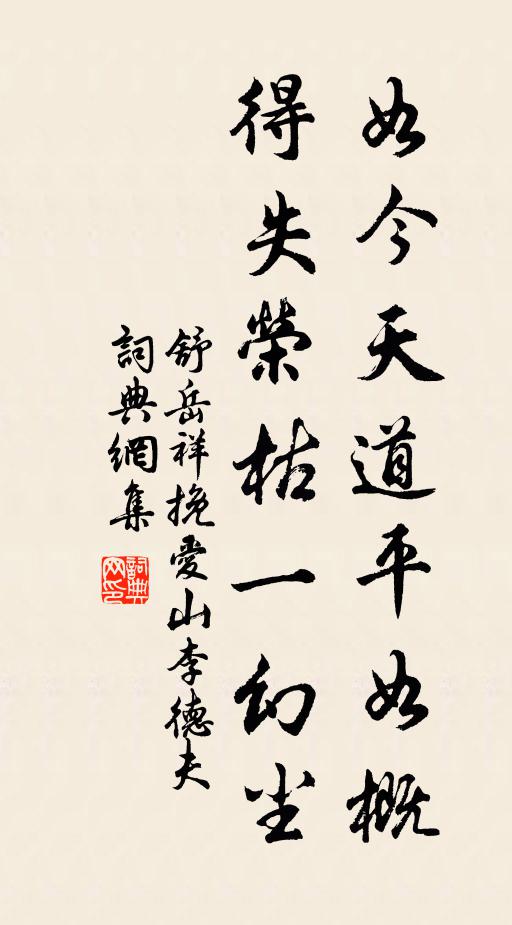 如今天道平如概
得失榮枯一幻尘
舒岳祥挽愛山李德夫
詞典網集
詞典网印